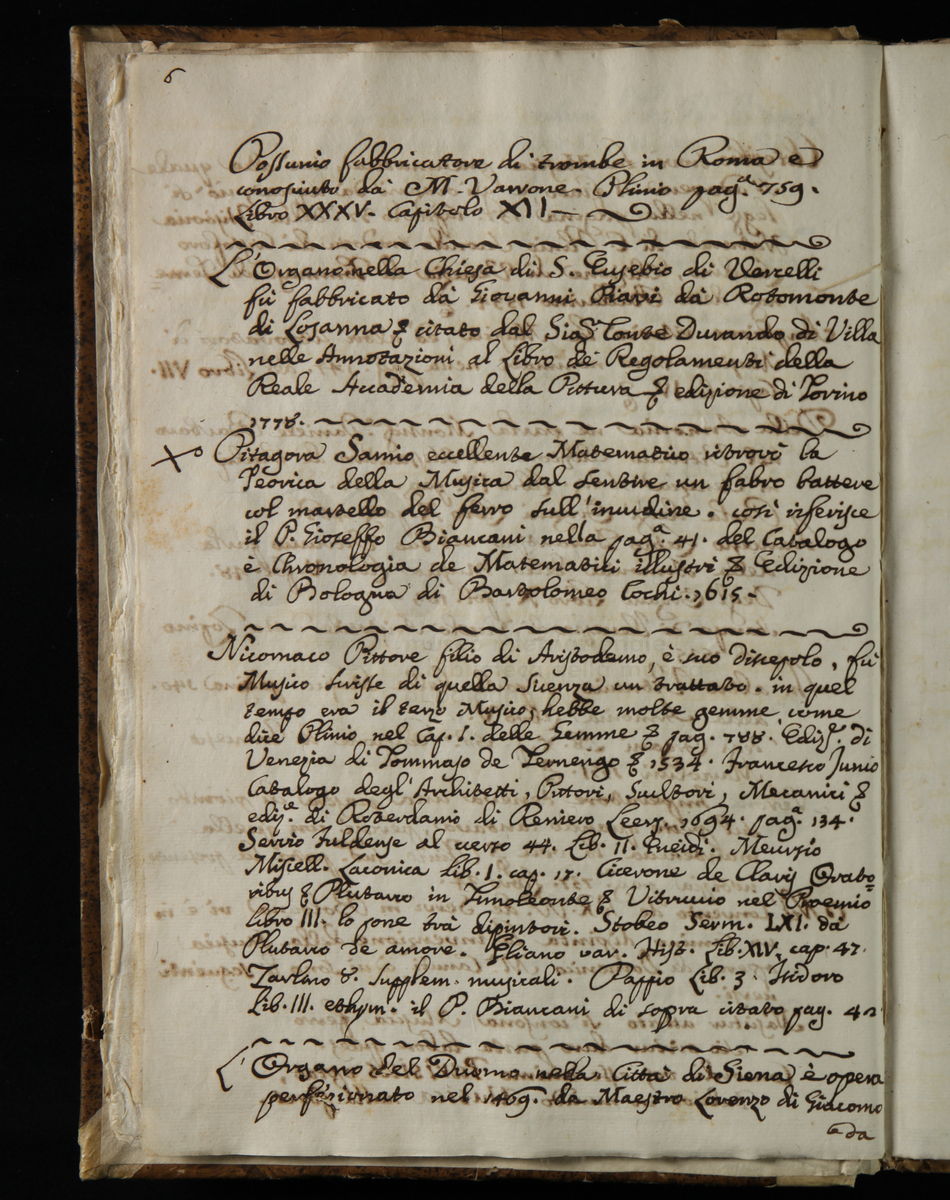 6
Possunio fabbricatore di trombe in Roma è
conosciuto da M. Varrone. Plinio pag.ª 759.
Libro XXXV. Capitolo XII
L'Organo nella Chiesa di S. Eusebio di Vercelli
fù fabbricato dà Giovanni Piavi dà Rotomonte
di Losanna & citato dal Sig.r Conte Durando di Villa
nelle Annotazioni al Libro de Regolamenti della
Reale Accademia della Pittura & edizione di Torino
1778.
Pitagora Samio eccellente Matematico ritrovò la
Teorica della Musica dal sentire un fabro battere
col martello del ferro sull'incudine. così riferisce
il P. Gioseffo Biancani nella pag.ª 41. del Catalogo
è Chronologia de Matematici illustri & Edizione
di Bologna di Bartolomeo Cochi. 1615.
Nicomaco Pittore filio di Aristodemo, è suo discepolo, fù
Musico scrisse di quella scienza un trattato. in quel
tempo era il terzo Musico, hebbe molte gemme come
dice Plinio nel Cap. I. delle Gemme & pag. 788. Ediz.e di
Venezia di Tommaso de Ternengo & 1534. Francesco Junio
Catalogo degl'Architetti, Pittori, Scultori, Mecanici &
ediz.e di Roterdamo di Reniero Leers. 1694. pag.ª 134.
Servio Fuldense al verso 44. Lib. II. Eneidi. Meursio
Miscell. Laconica Lib. I. cap. 17. Cicerone de Claris Orato=
ribus & Plutarco in Timoleonte & Vitruvio nel Proemio
libro III. lo pone trà dipintori. Stobeo Serm. LXI. dà
Plutarco de amore. Eliano var. Hist. Lib. XIV. cap. 47.
Zarlino 8. supplem. musicali. Pappio Lib. 3. Isidoro
Lib. III. ethym. il P. Biancani di sopra citato pag. 42
L'Organo del Duomo nella Città di Siena è opera
perfezionato nel 1469. da Maestro Lorenzo di Giacomo
da